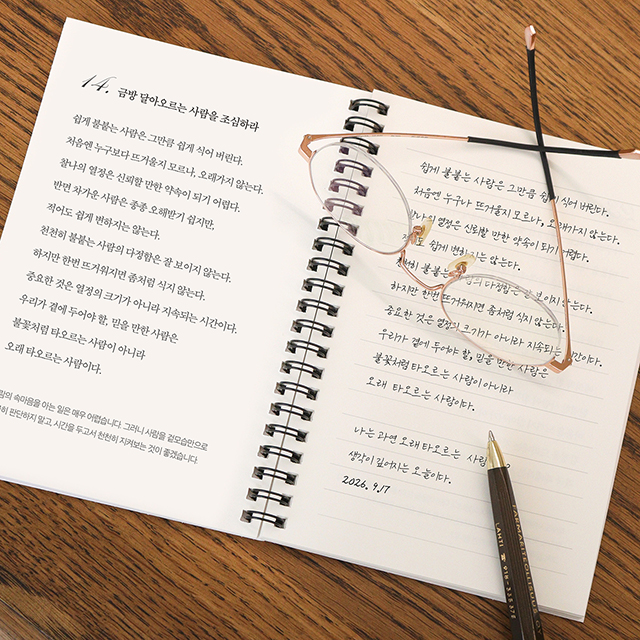 14. 금방 달아오르는 사람을 조심하라
쉽게 불붙는 사람은 그만큼 쉽게 식어 버린다.
처음엔 누구보다 뜨거울지 모르나, 오래가지 않는다.
찰나의 열정은 신뢰할 만한 약속이 되기 어렵다.
반면 차가운 사람은 종종 오해받기 쉽지만,
적어도 쉽게 변하지는 않는다.
천천히 불붙는 사람의 다정함은 잘 보이지 않는다.
하지만 한번 뜨거워지면 좀처럼 식지 않는다.
중요한 것은 열정의 크기가 아니라 지속되는 시간이다.
우리가 곁에 두어야 할, 믿을 만한 사람은
불꽃처럼 타오르는 사람이 아니라
오래 타오르는 사람이다.
람의 속마음을 아는 일은 매우 어렵습니다. 그러니 사람을 겉모습만으로
히 판단하지 말고, 시간을 두고서 천천히 지켜보는 것이 좋겠습니다.
쉽게 불붙는 사람은 그만큼 쉽게 식어 버린다.
처음엔 누구나 뜨거울지 모르나, 오래가지 않는다.
나의 열정은 신뢰할 만한 약속이 되기 어렵다.
도 쉽게 변하지는 않는다.
불붙는 다정함은 보이지 않는다.
하지만 한번 뜨거워지면 좀처럼 식지 않는다.
중요한 것은 열정의 크기가 아니라 지속되는 시간이다.
우리가 곁에 두어야 할, 믿을 만한 사람은
불꽃처럼 타오르는 사람이 아니라
오래 타오르는 사람이다.
나는 과연 오래 타오르는 사람
생각이 깊어지는 오늘이다.
2026. 9.17